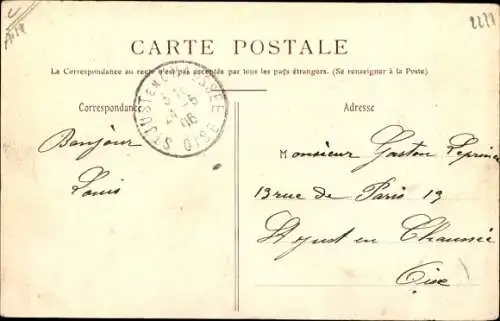 2271
CARTE POSTALE
La Correspondance au recto n'est pas acceptée par tous les pays étrangers. (Se renseigner à la Poste)
Correspondance
Adresse
ST JUST EN CHAUSSÉE
06
OISE
Bonjour
Louis
Monsieur Gaston Leprince
13 rue de Paris 13
St Just en Chaussée
Oise